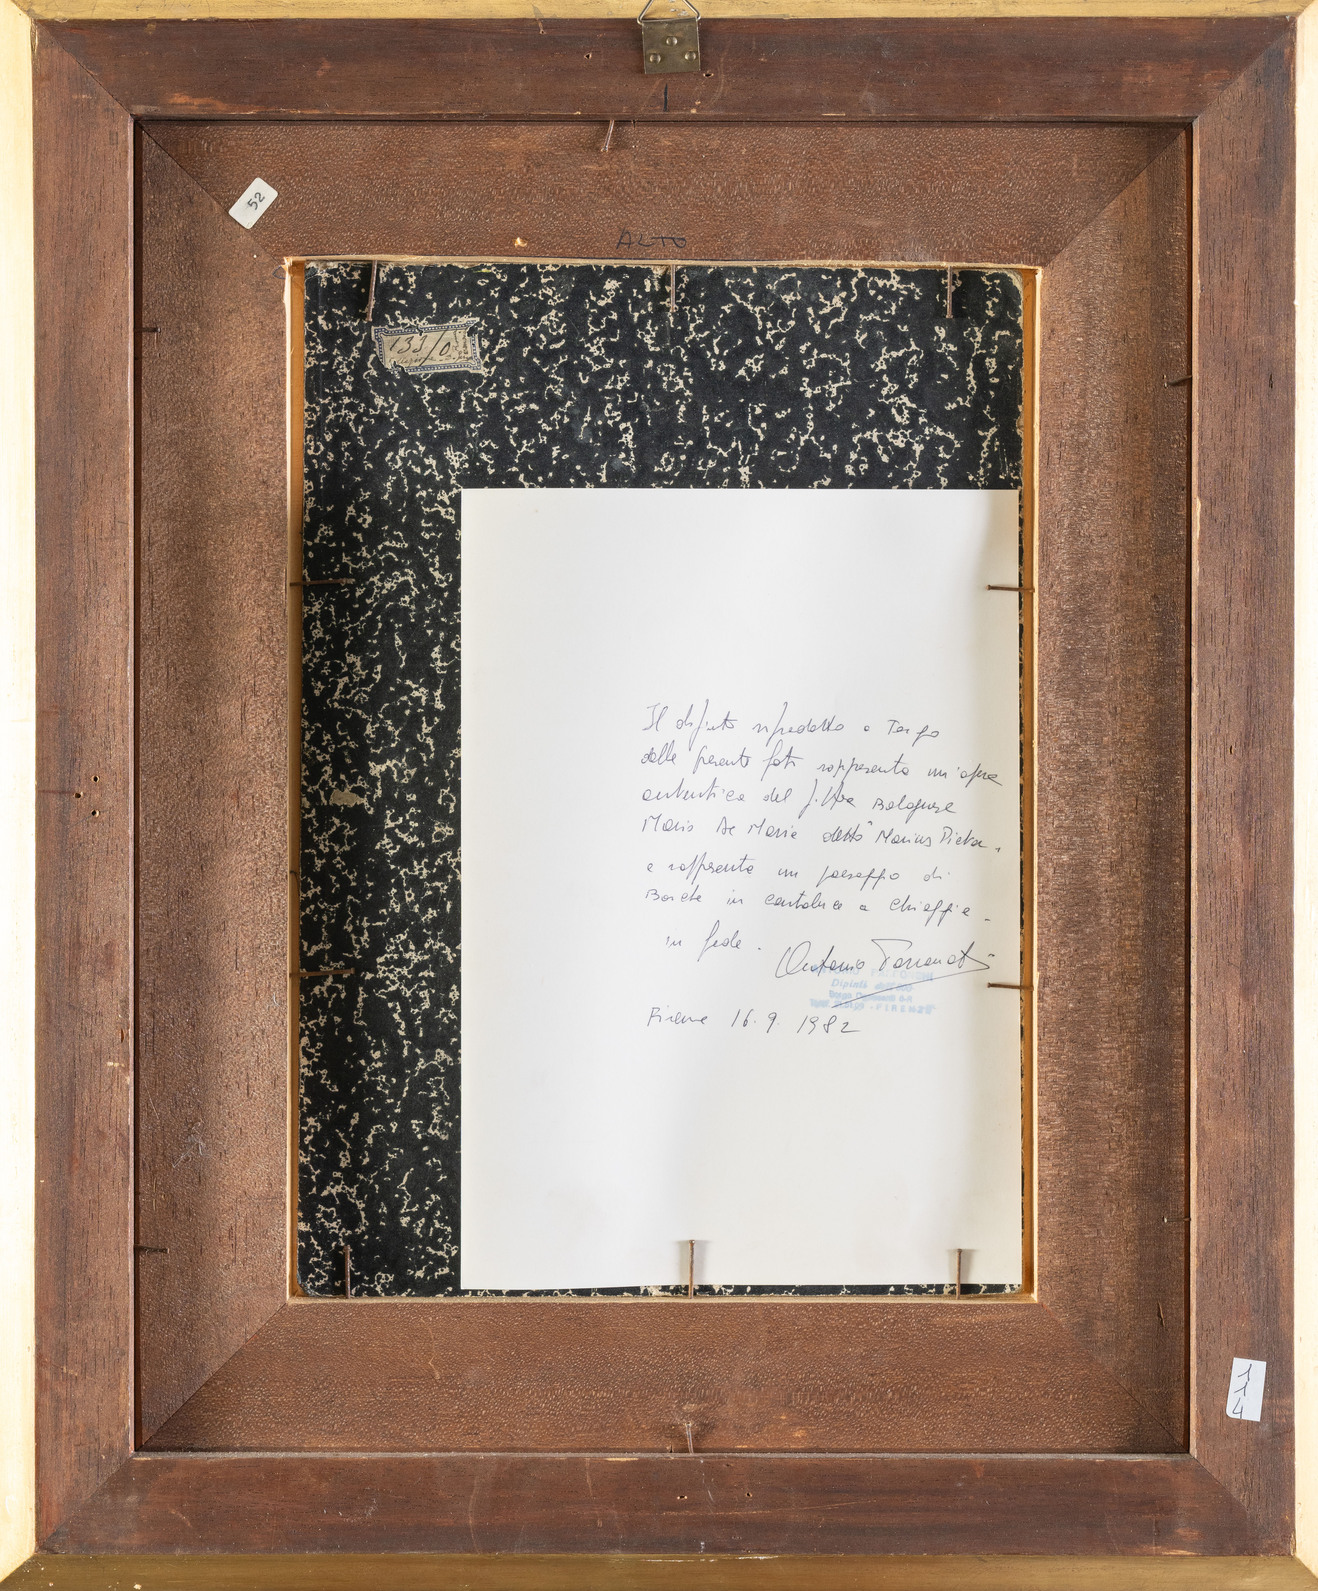 52
ALTO
131/0
Il dipinto riprodotto a Tergo
della presente foto rappresenta un'opera
autentica del pittore Bolognese
Mario De Maria detto "Marius Pictor"
e rappresenta un paesaggio di
Barche in a Chioggia
in fede.
Antonio
Dipinti
FIRENZE
Firenze 16.9.1982
114